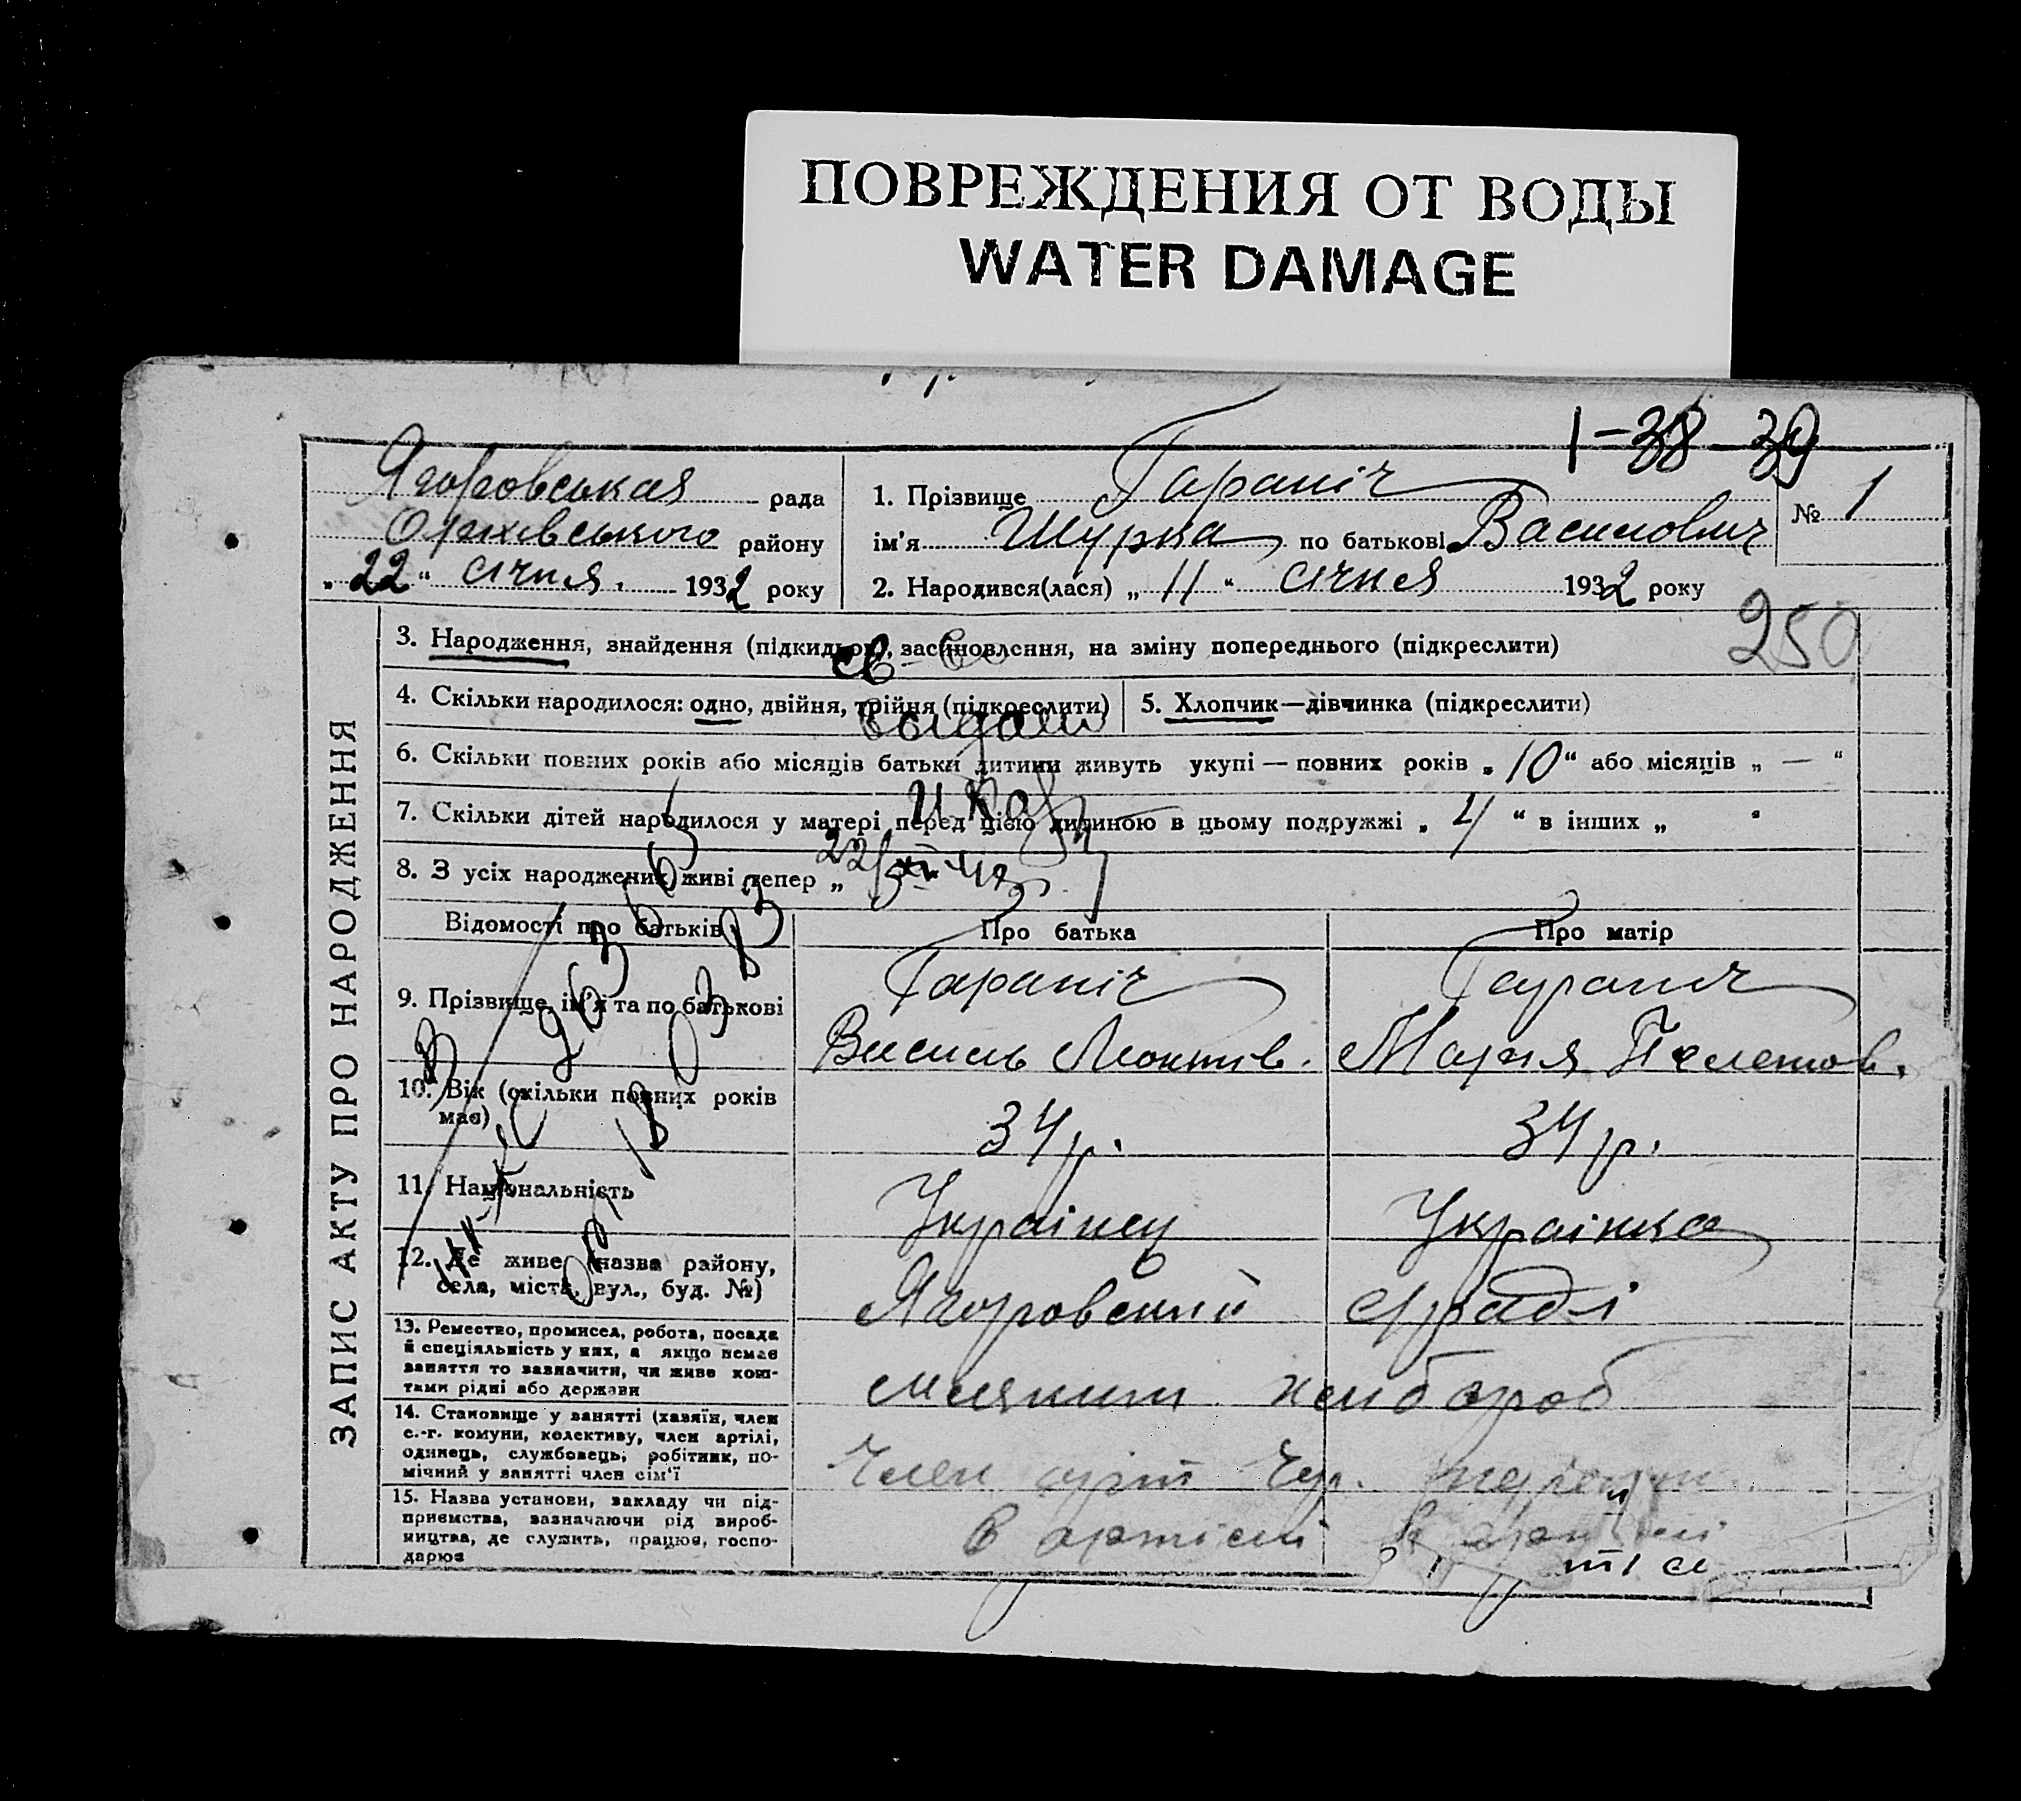 ПОВРЕЖДЕНИЯ ОТ ВОДЫ
WATER DAMAGE
1-38-39
Ягоровськая рада
Оріхівського району
„22“ січня. 1932 року
1. Прізвище Гараніч
ім'я Шурка по батькові Василович
№ 1
2. Народився(лася) „11“ січня 1932 року
250
ЗАПИС АКТУ ПРО НАРОДЖЕННЯ
3. Народження, знайдення (підкидьок), засиновлення, на зміну попереднього (підкреслити)
св-во
4. Скільки народилося: одно, двійня, трійня (підкреслити)
5. Хлопчик—дівчинка (підкреслити)
выдано
6. Скільки повних років або місяців батьки дитини живуть укупі — повних років „10“ або місяців „—“
7. Скільки дітей народилося у матері перед цією дитиною в цьому подружжі „4“ в інших „ “
8. З усіх народжених живі тепер „
Відомості про батьків
Про батька
Про матір
9. Прізвище, ім'я та по батькові
Гараніч
Василь Леонтів.
Гаранич
Марія
10. Вік (скільки повних років має)
34 р.
34 р.
11. Національність
Українец
Українка
12. Де живе (назва району,
села, міста, вул., буд. №)
Ягоровский
13. Ремество, промисел, робота, посада
й спеціяльність у них, а якщо немає
заняття то зазначити, чи живе кош-
тами рідні або держави
хлибороб
14. Становище у занятті (хазяїн, член
с.-г. комуни, колективу, член артілі,
одинець, службовець, робітник, по-
мічний у занятті член сім'ї
Член арт
15. Назва установи, закладу чи під-
приємства, зазначаючи рід вироб-
ництва, де служить, працює, госпо-
дарює
в артіли